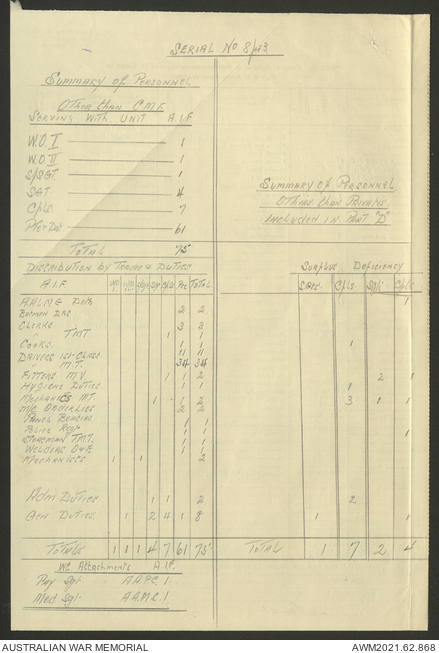 SERIAL No 8/43
SUMMARY OF PERSONNEL
OTHER THAN CMF
SERVING WITH UNIT A.I.F
W.O. I 1
W.O. II 1
S/SGT 1
SGT 4
Cpls 7
61
TOTAL 75
SUMMARY OF PERSONNEL
OTHERS THAN
INCLUDED IN PART "D"
DISTRIBUTION BY TRADES & DUTIES
SURPLUS DEFICIENCY
A.I.F. TOTAL
Sgts. Cpls. Sgts. Cpls
A.A.L.M.G 1
BATMEN 2 2
CLERKS 3 3
" TMT 1 1
COOKS 1 1 1
DRIVERS 1ST CLASS 11 11
" M.T. 34 34
FITTERS M.V. 1 1 2 2 1
HYGIENE DUTIES 1 1 1
MECHANICS MT. 1 1 2 3 1
M/C ORDERLIES 2 2
PANEL BEATERS 1 1
1 1 1
STOREMAN TMT. 1 1
WELDERS 1 1
MECHANISTS 1 1 2
Adm Duties 1 1 2 2
Gen Duties. 1 2 4 1 8 1 1
TOTALS 1 1 1 4 7 61 75
TOTAL 1 7 2 4
Attachments A.I.F.
Pay Sgt. A.A.P.C. 1
Med Sgt. A.A.M.C. 1
AUSTRALIAN WAR MEMORIAL
AWM2021.62.868